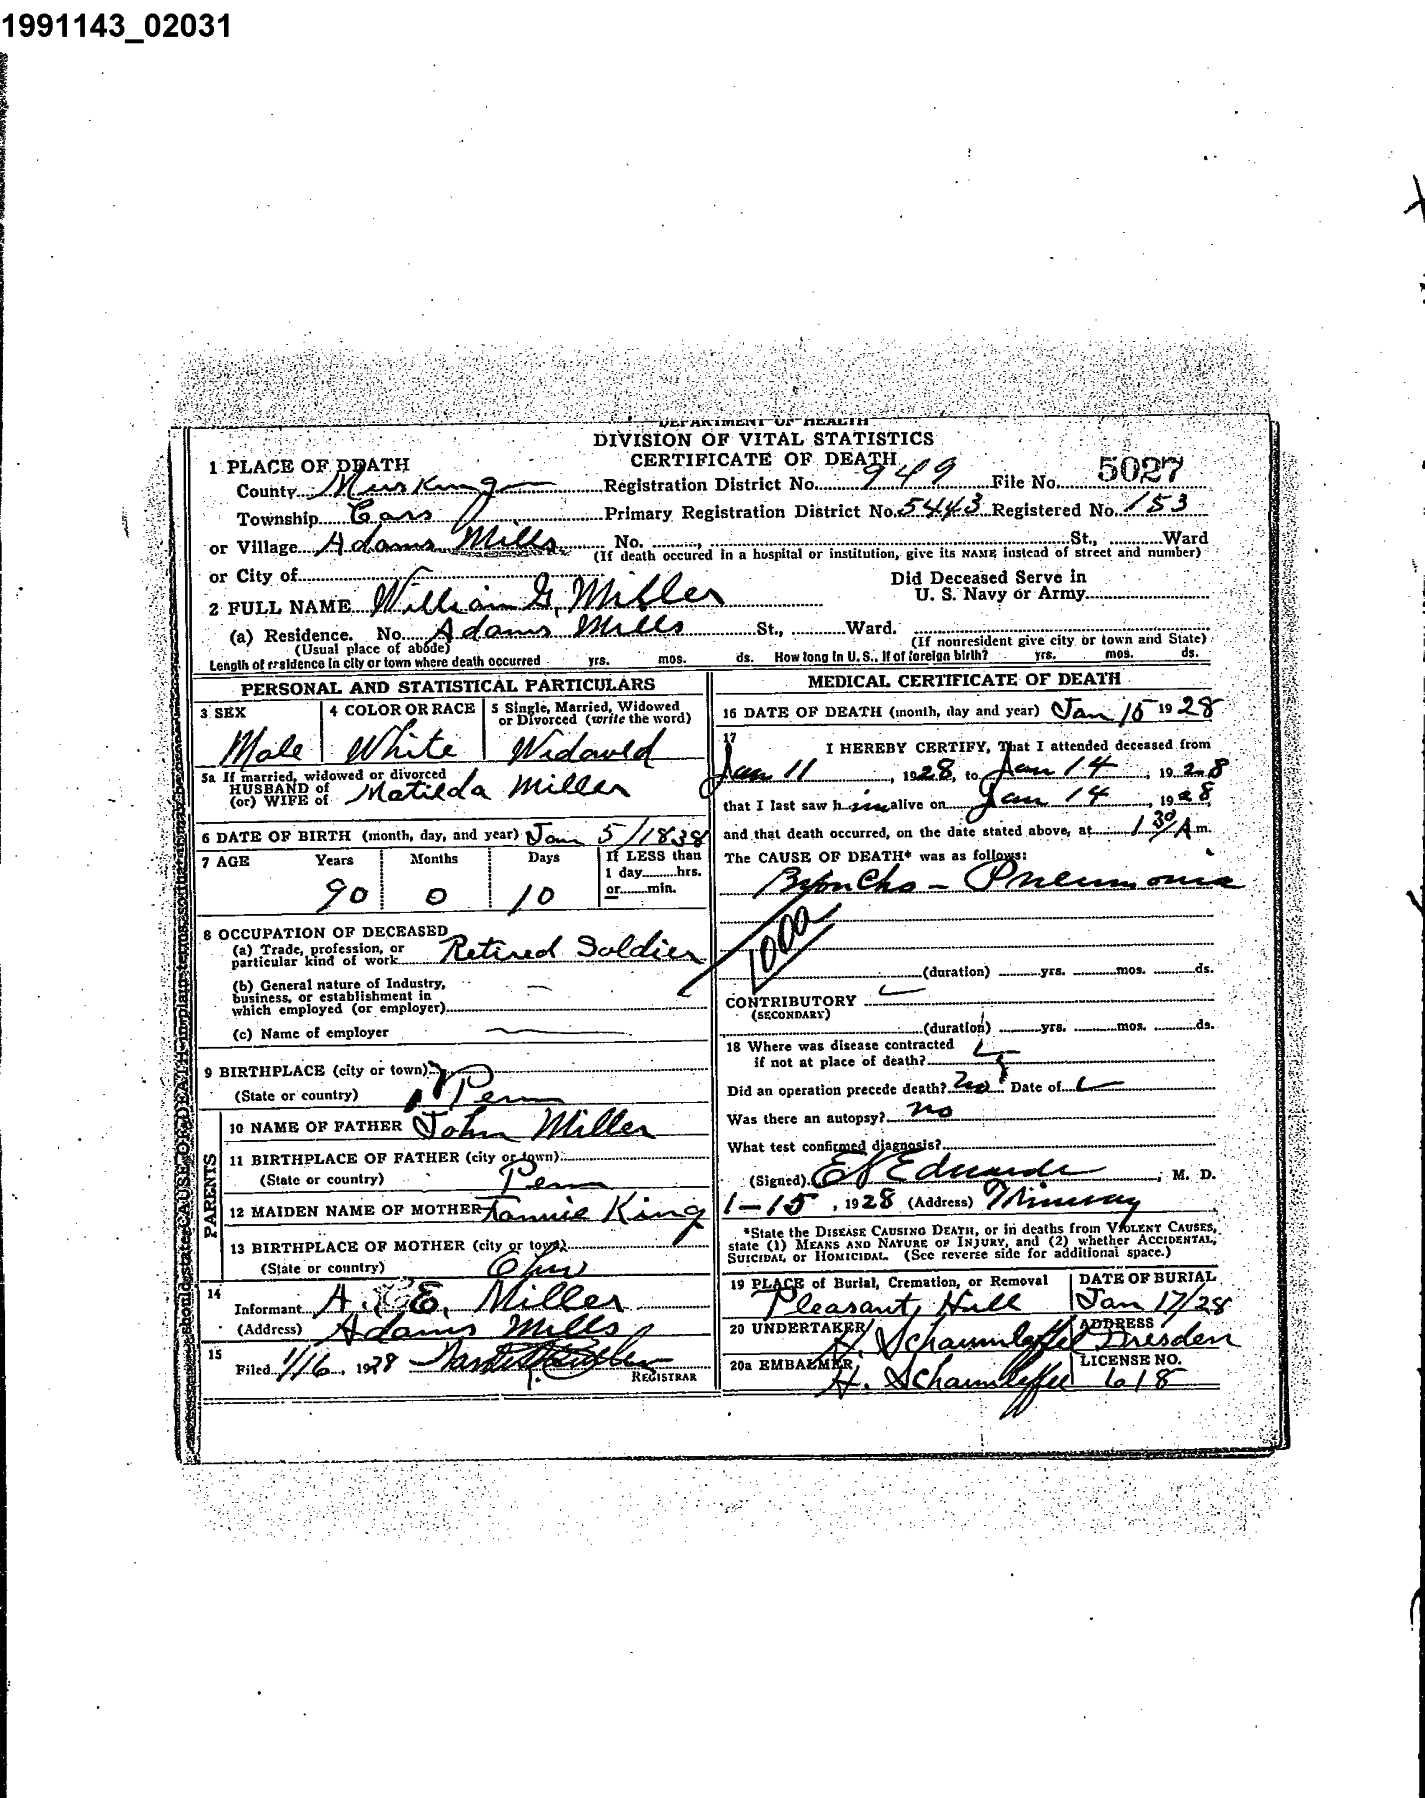 1991143_02031
DEPARTMENT OF HEALTH
DIVISION OF VITAL STATISTICS
CERTIFICATE OF DEATH
1 PLACE OF DEATH
County Muskingum Registration District No. 949 File No. 5027
Township Cass Primary Registration District No. 5443 Registered No. 153
or Village Adams Mills No. St., Ward
(If death occured in a hospital or institution, give its NAME instead of street and number)
or City of
Did Deceased Serve in
U. S. Navy or Army
2 FULL NAME William G. Miller
(a) Residence. No. Adams Mills St., Ward.
(Usual place of abode) (If nonresident give city or town and State)
Length of residence in city or town where death occurred yrs. mos. ds. How long in U. S., if of foreign birth? yrs. mos. ds.
PERSONAL AND STATISTICAL PARTICULARS
3 SEX 4 COLOR OR RACE 5 Single, Married, Widowed
or Divorced (write the word)
Male White Widowed
5a If married, widowed or divorced
HUSBAND of
(or) WIFE of Matilda Miller
6 DATE OF BIRTH (month, day, and year) Jan 5/1838
7 AGE Years Months Days If LESS than
1 day hrs.
or min.
90 0 10
8 OCCUPATION OF DECEASED
(a) Trade, profession, or
particular kind of work Retired Soldier
(b) General nature of Industry,
business, or establishment in
which employed (or employer)
(c) Name of employer
9 BIRTHPLACE (city or town)
(State or country) Penn
PARENTS
10 NAME OF FATHER John Miller
11 BIRTHPLACE OF FATHER (city or town)
(State or country) Penn
12 MAIDEN NAME OF MOTHER Fannie King
13 BIRTHPLACE OF MOTHER (city or town)
(State or country) Ohio
14
Informant A. E. Miller
(Address) Adams Mills
15
Filed 1/16, 1928
REGISTRAR
MEDICAL CERTIFICATE OF DEATH
16 DATE OF DEATH (month, day and year) Jan 15 1928
17
I HEREBY CERTIFY, That I attended deceased from
Jan 11, 1928, to Jan 14, 1928
that I last saw him alive on Jan 14, 1928,
and that death occurred, on the date stated above, at 1 30 A m.
The CAUSE OF DEATH* was as follows:
Broncho - Pneumonia
100a
(duration) yrs. mos. ds.
CONTRIBUTORY
(SECONDARY)
(duration) yrs. mos. ds.
18 Where was disease contracted
if not at place of death?
Did an operation precede death? no Date of
Was there an autopsy? no
What test confirmed diagnosis?
(Signed) Edwards, M. D.
1-15, 1928 (Address)
*State the DISEASE CAUSING DEATH, or in deaths from VIOLENT CAUSES,
state (1) MEANS AND NATURE OF INJURY, and (2) whether ACCIDENTAL,
SUICIDAL or HOMICIDAL. (See reverse side for additional space.)
19 PLACE of Burial, Cremation, or Removal DATE OF BURIAL
Pleasant Hill Jan 17/28
20 UNDERTAKER ADDRESS
H. Schaumleffel Dresden
20a EMBALMER LICENSE NO.
H. Schaumleffel 618